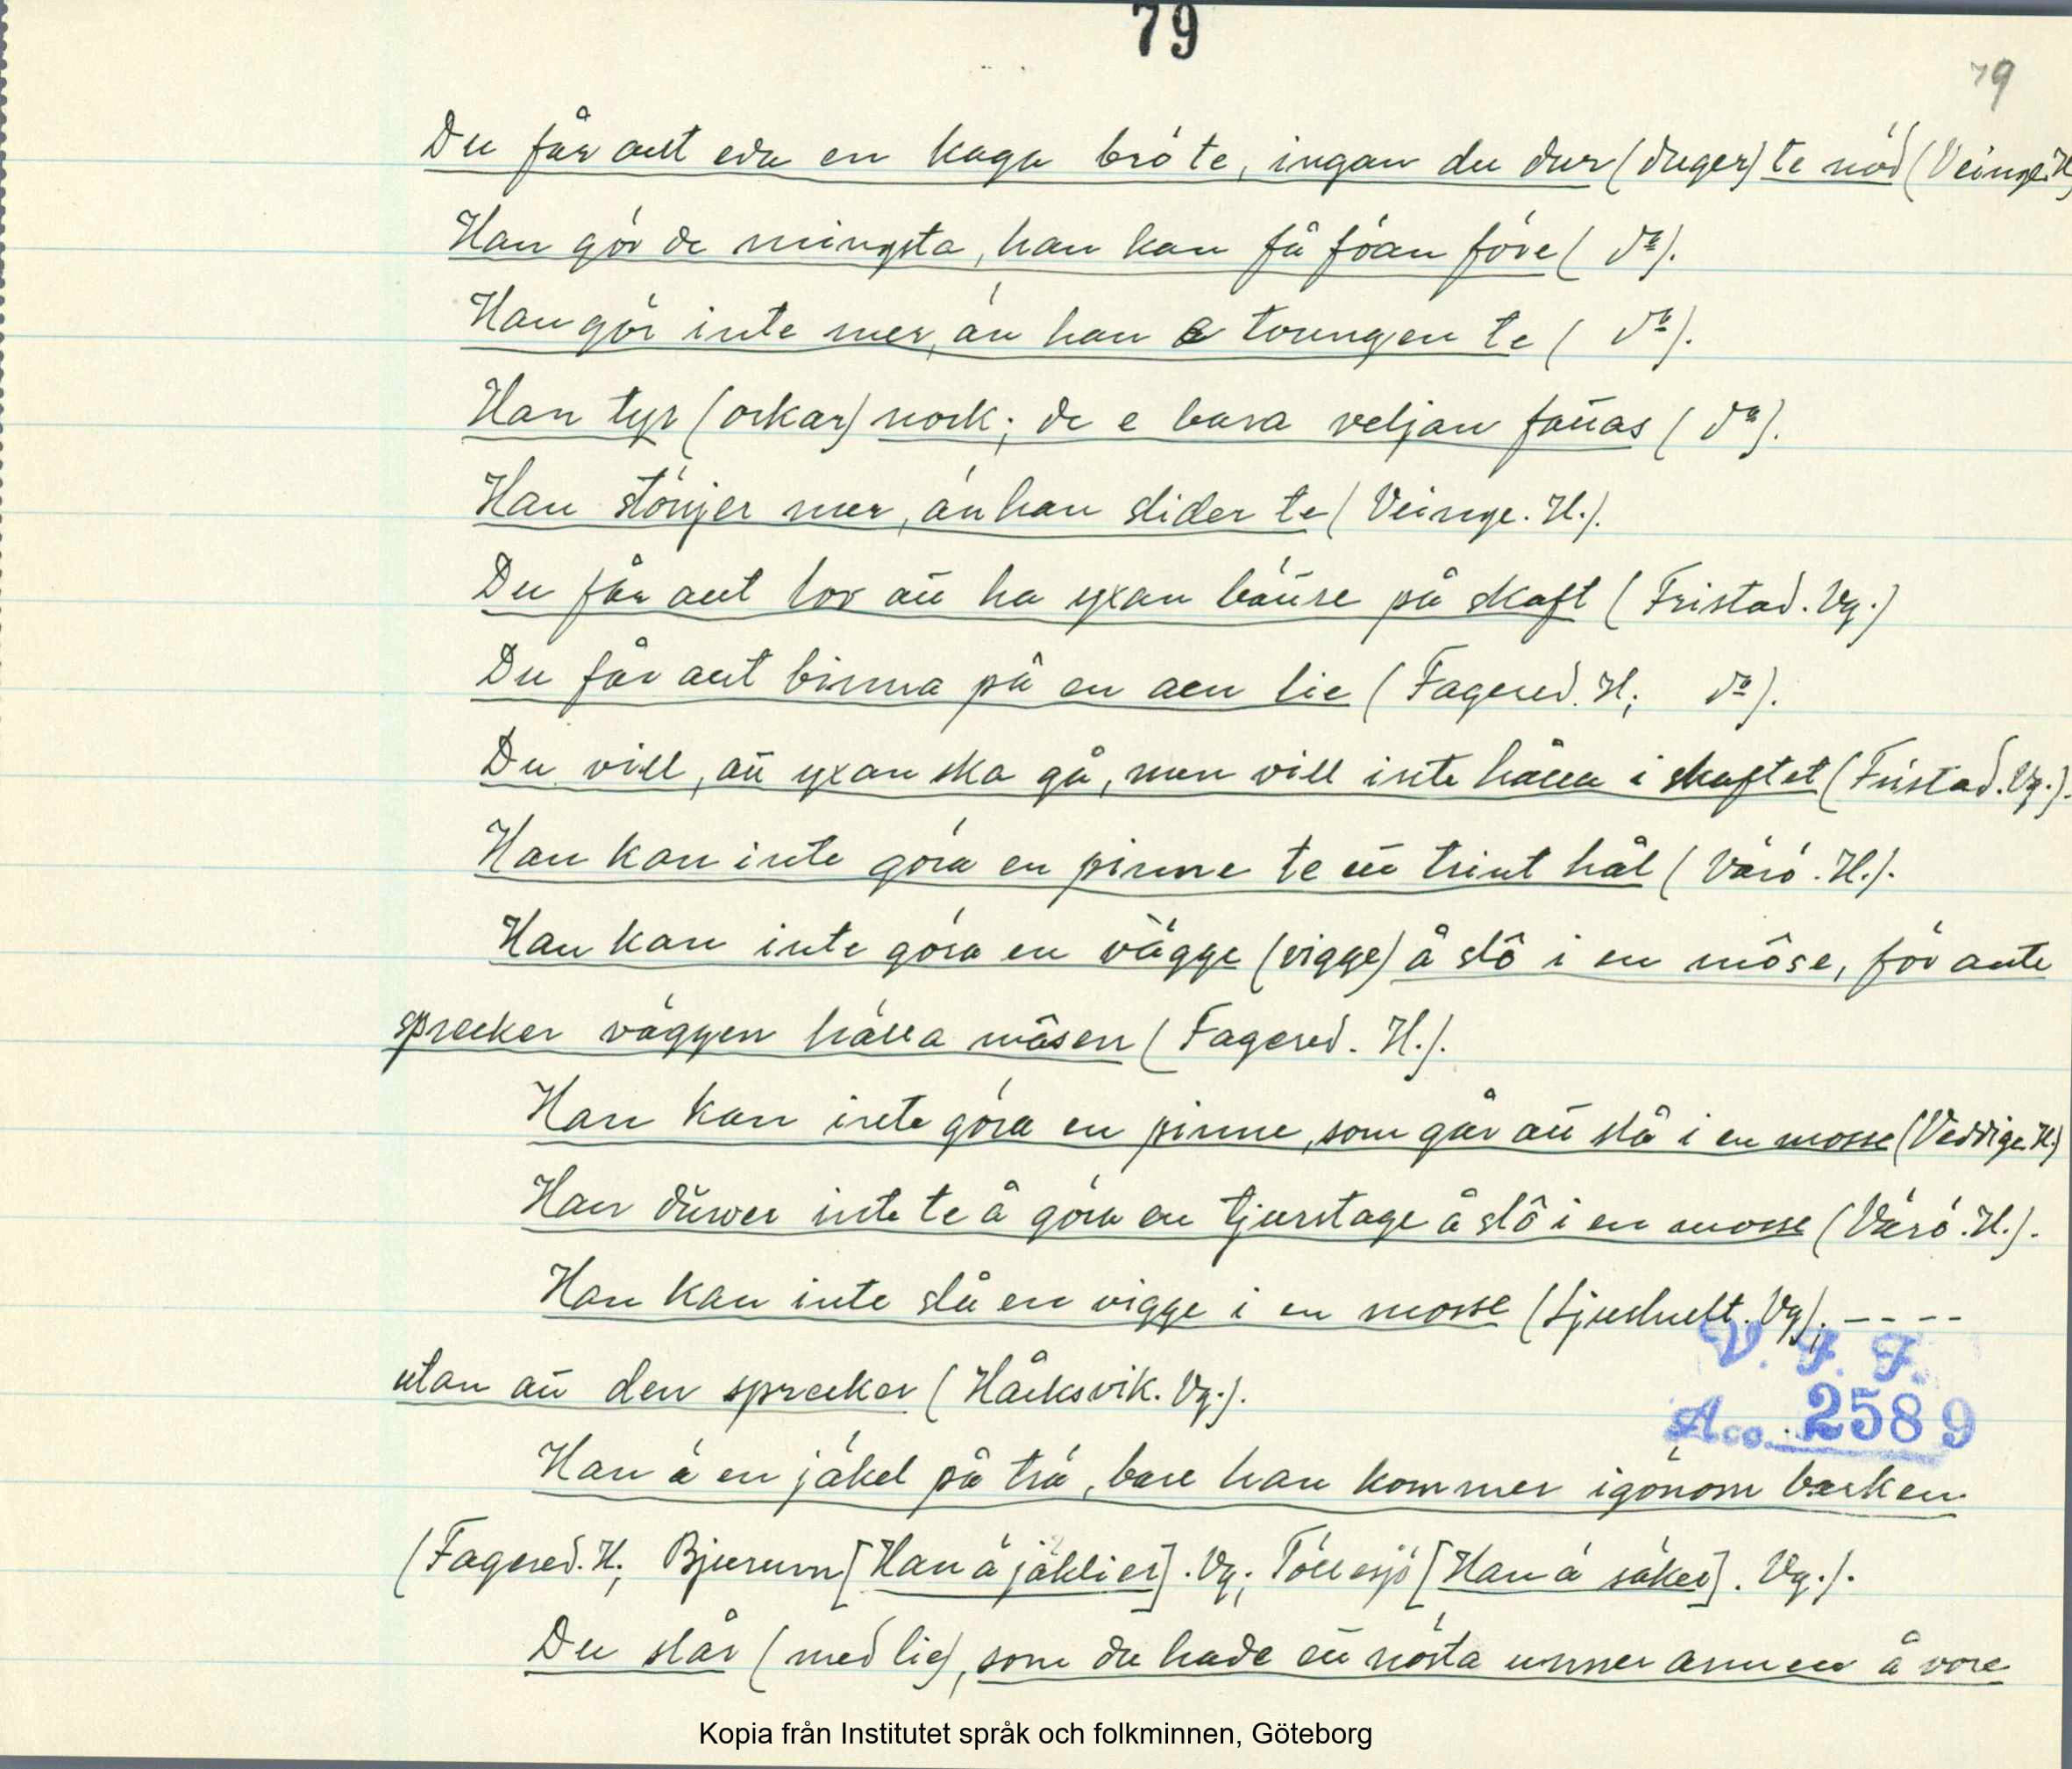 79
79
Du får allt eda en kaga bröte, ingan du dur (duger) te nöd (Veinge. H)
Han gör de mingsta, han kan få föan före ( d:o).
Han gör inte mer, än han e tvungen te ( d:o).
Han tyr (orkar) nock; de e bara veljan fattas ( d:o).
Han stönjer mer, än han slider te (Veinge. H.).
Du får allt lov att ha yxan bättre på skaft (Fristad. Vg.)
Du får allt binna på en aen lie (Fagered. H; d:o).
Du vill, att yxan ska gå, men vill inte hålla i skaftet (Fristad. Vg.).
Han kan inte göra en pinne te ett trint hål (Värö. H.).
Han kan inte göra en vägge (vigge) å slô i en môse, för ante
sprecker väggen hälla môsen (Fagered. H.).
Han kan inte göra en pinne, som går att slå i en mosse (Veddige. H.)
Han duwer inte te å göra en tjurstage å slô i en mosse (Värö. H.).
Han kan inte slå en vigge i en mosse (Ljushult. Vg); – – – –
utan att den sprecker (Håcksvik. Vg.).
V. F. F.
Acc. 2589
Han ä en jäkel på trä, bare han kommer igönom barken
(Fagered. H; Bjurum [Han ä jäklier]. Vg; Töllesjö [Han ä säker]. Vg.).
Du slår (med lie), som du hade ett nösta unner armen å vore
Kopia från Institutet språk och folkminnen, Göteborg